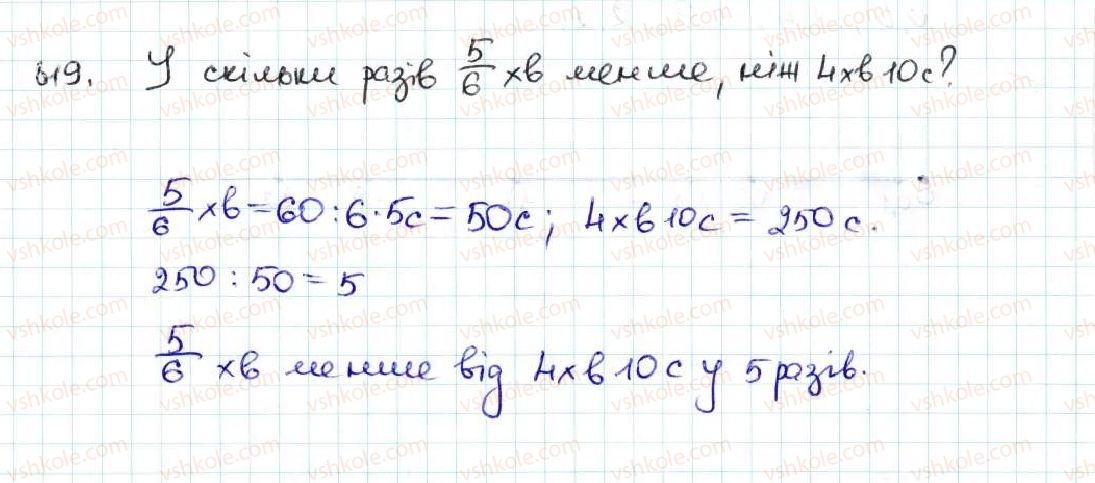 619. У скільки разів 5/6 хв менше, ніж 4хв 10с?
5/6 хв = 60 : 6 · 5с = 50с; 4хв 10с = 250с.
250 : 50 = 5
5/6 хв менше від 4хв 10с у 5 разів.